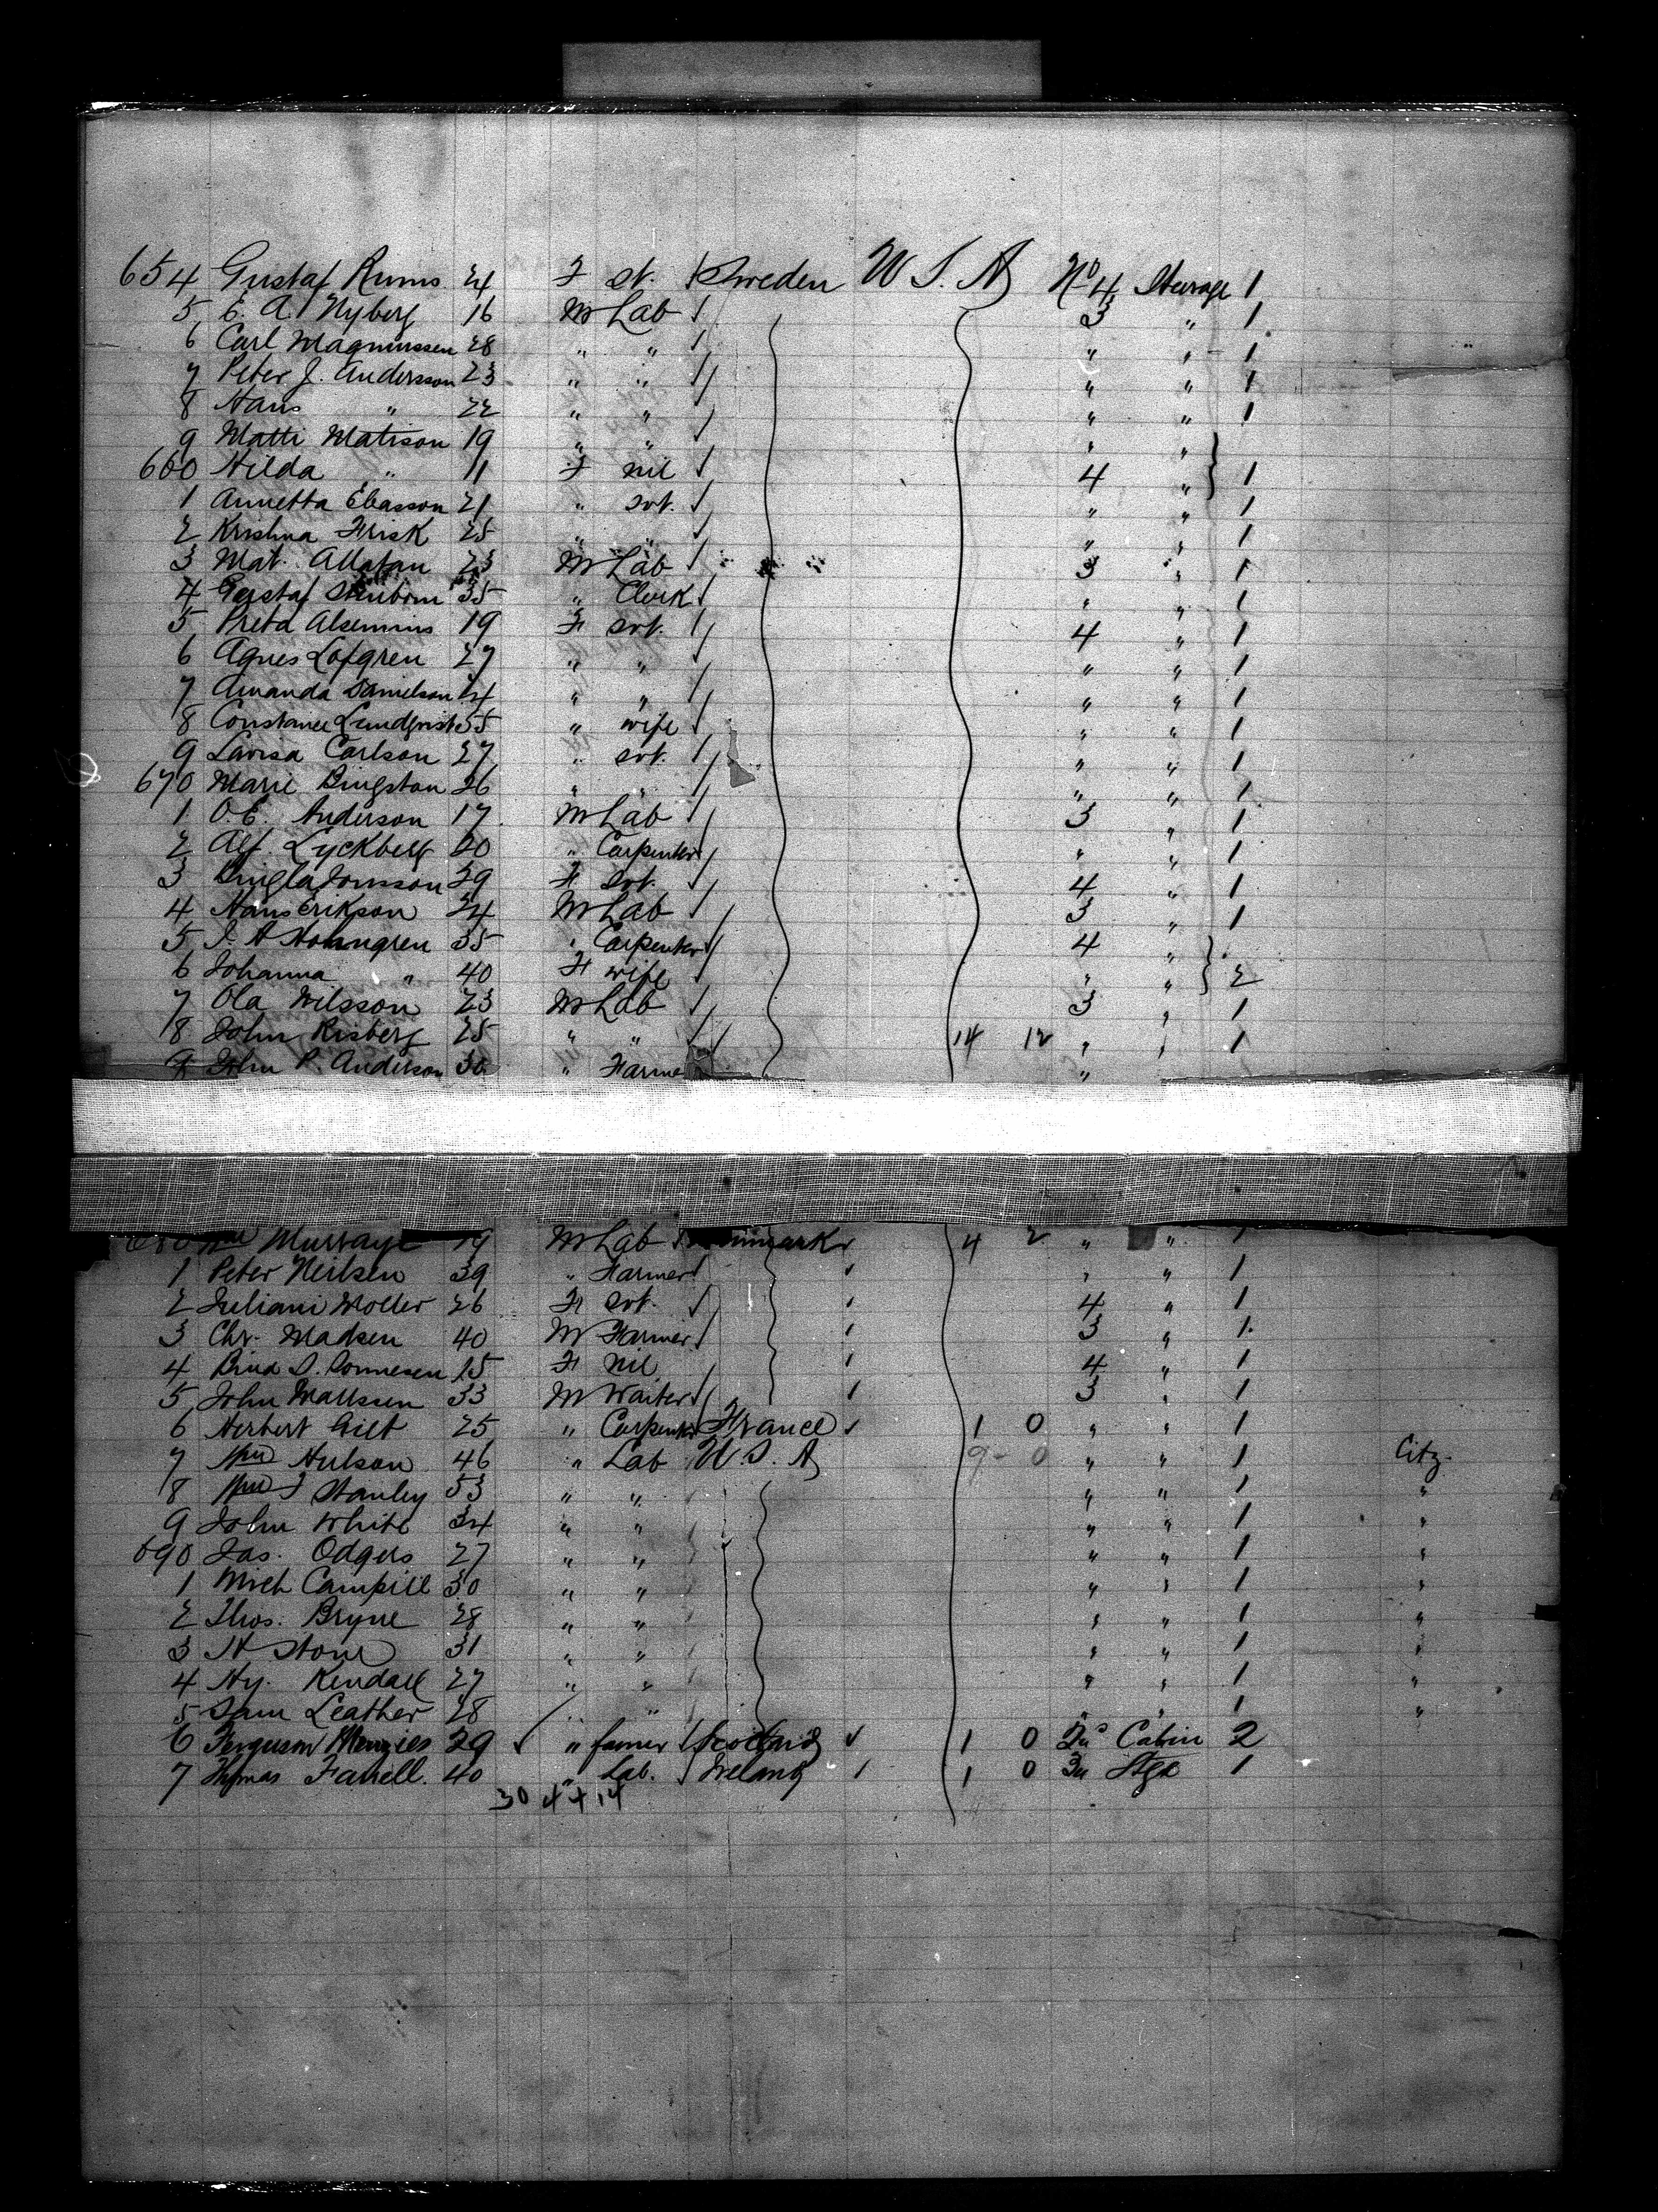 654 Gustaf Rums 24 F st. Sweden U S. A No 4 Steerage 1
5 E. A. Nyberg 16 M Lab 3 " 1
6 Carl Magnussen 28 " " " " 1
7 Peter J. Andersson 23 " " " " 1
8 Hans " 22 " " " " 1
9 Matti Matison 19 " " " "
660 Hilda " 11 F nil 4 " 1
1 Annetta Ebasson 21 " svt. " " 1
2 Kristina Frisk 25 " " " " 1
3 Mat. 23 M Lab 3 " 1
4 Gustaf 35 " Clerk " " 1
5 19 F svt. 4 " 1
6 Agnes Lofgren 27 " " " " 1
7 Amanda Danielson 24 " " " " 1
8 Constance Lundqvist 55 " wife " " 1
9 Lavisa Carlson 27 " svt. " " 1
670 Marie Bengston 26 " " " " 1
1 O. E. Anderson 17 M Lab 3 " 1
2 Alf. Lyckberg 20 " Carpenter " " 1
3 Jonsson 29 F svt. 4 " 1
4 Hans Erikson 24 M Lab 3 " 1
5 J. A Holmgren 35 " Carpenter 4 "
6 Johanna " 40 F wife " " 2
7 Ola Nilsson 23 M Lab 3 " 1
8 John Risberg 25 " " 14 12 " " 1
9 John P. Anderson 36 " Farme "
680 Wm 19 M Lab 4 2 " " 1
1 Peter Neilsen 39 " Farmer " " 1
2 Juliani Moller 26 F svt. 4 " 1
3 Chr. Madsen 40 M Farmer 3 " 1
4 15 F Nil 4 " 1
5 John 33 M Waiter 3 " 1
6 Herbert Gilt 25 " Carpenter France 1 0 " " 1
7 Wm 46 " Lab U. S. A 9 - 0 " " 1 Citz.
8 Wm J Stanley 53 " " " " 1 "
9 John White 34 " " " " 1 "
690 Jas. Odgers 27 " " " " 1 "
1 Mich Campill 30 " " " " 1 "
2 Thos. Bryne 28 " " " " 1 "
3 H Stone 31 " " " " 1 "
4 Hy. Kendall 27 " " " " 1 "
5 Sam Leather 28 " " " " 1 "
6 Ferguson Menzies 29 " farmer Scotland 1 0 Cabin 2
7 Thomas Farrell. 40 " Lab. Ireland 1 0 Stge 1
30 4 + 14